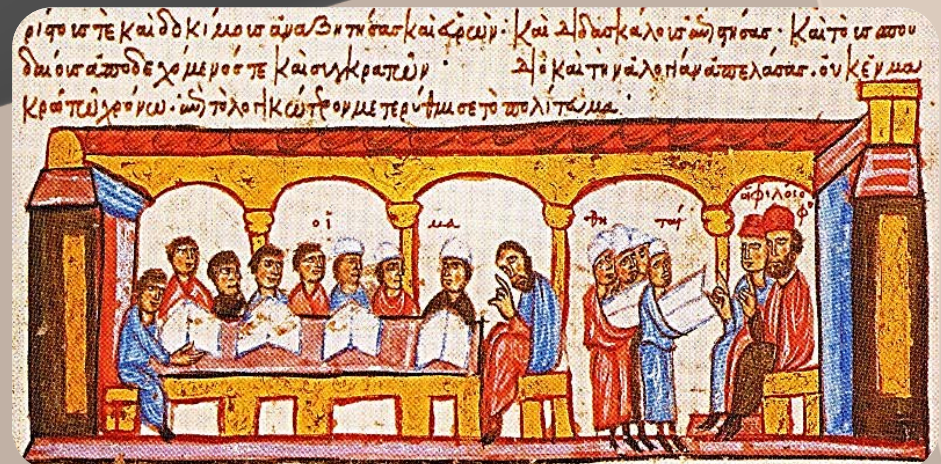 ρίτοις τε καὶ δοκίμοις ἀναζητήσας καὶ εὑρών· καὶ διδασκάλοις ἐπιστήσας· καὶ τοὺς σπου
δαίους ἀποδεχόμενός τε καὶ συγκροτῶν· διὸ καὶ τὴν ἀπελάσας· οὐκ ἐν μα
κρῷ τῷ χρόνῳ· ἐπὶ τὸ λογικώτερον μετερύθμισε τὸ πολίτευμα·
οἱ μα θη ταί